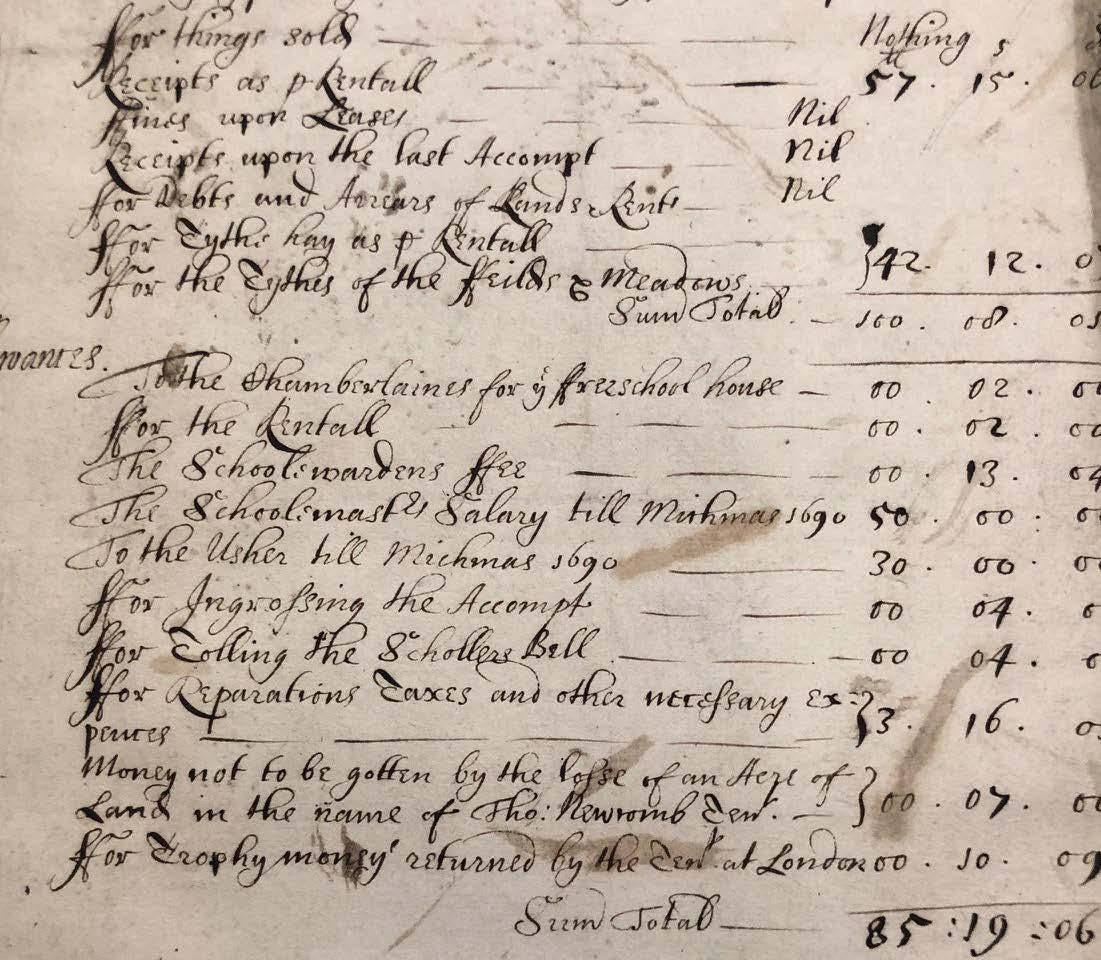 ffor things sold — Nothing
li s
Receipts as p Rentall — 57 . 15 . 06
ffines upon Leases — Nil
Receipts upon the last Accompt — Nil
ffor Debts and Arrears of Lands & Rents — Nil
ffor Tythe hay as p Rentall
ffor the Tythes of the ffeilds & Meadows } 42 . 12 . 0
Sum Total . — 100 . 08 . 0
wances.
To the Chamberlaines for ye ffreeschool house — 00 . 02 . 00
ffor the Rentall — 00 . 02 . 00
The Schoolewardens ffee — 00 . 13 . 04
The Schoolemastrs Salary till Michmas 1690 50 . 00 . 00
To the Usher till Michmas 1690 — 30 . 00 . 00
ffor Ingrossing the Accompt — 00 04 . 0
ffor Tolling the Schollers Bell — 00 04 . 0
ffor Reparations Taxes and other necessary ex=
pences — } 3 . 16 . 0
Money not to be gotten by the losse of an Acre of
Land in the name of Tho: Newcomb Tent. — } 00 . 07 . 00
ffor Trophy money returned by the Tent at London 00 . 10 . 09
Sum Total — 85 : 19 : 06